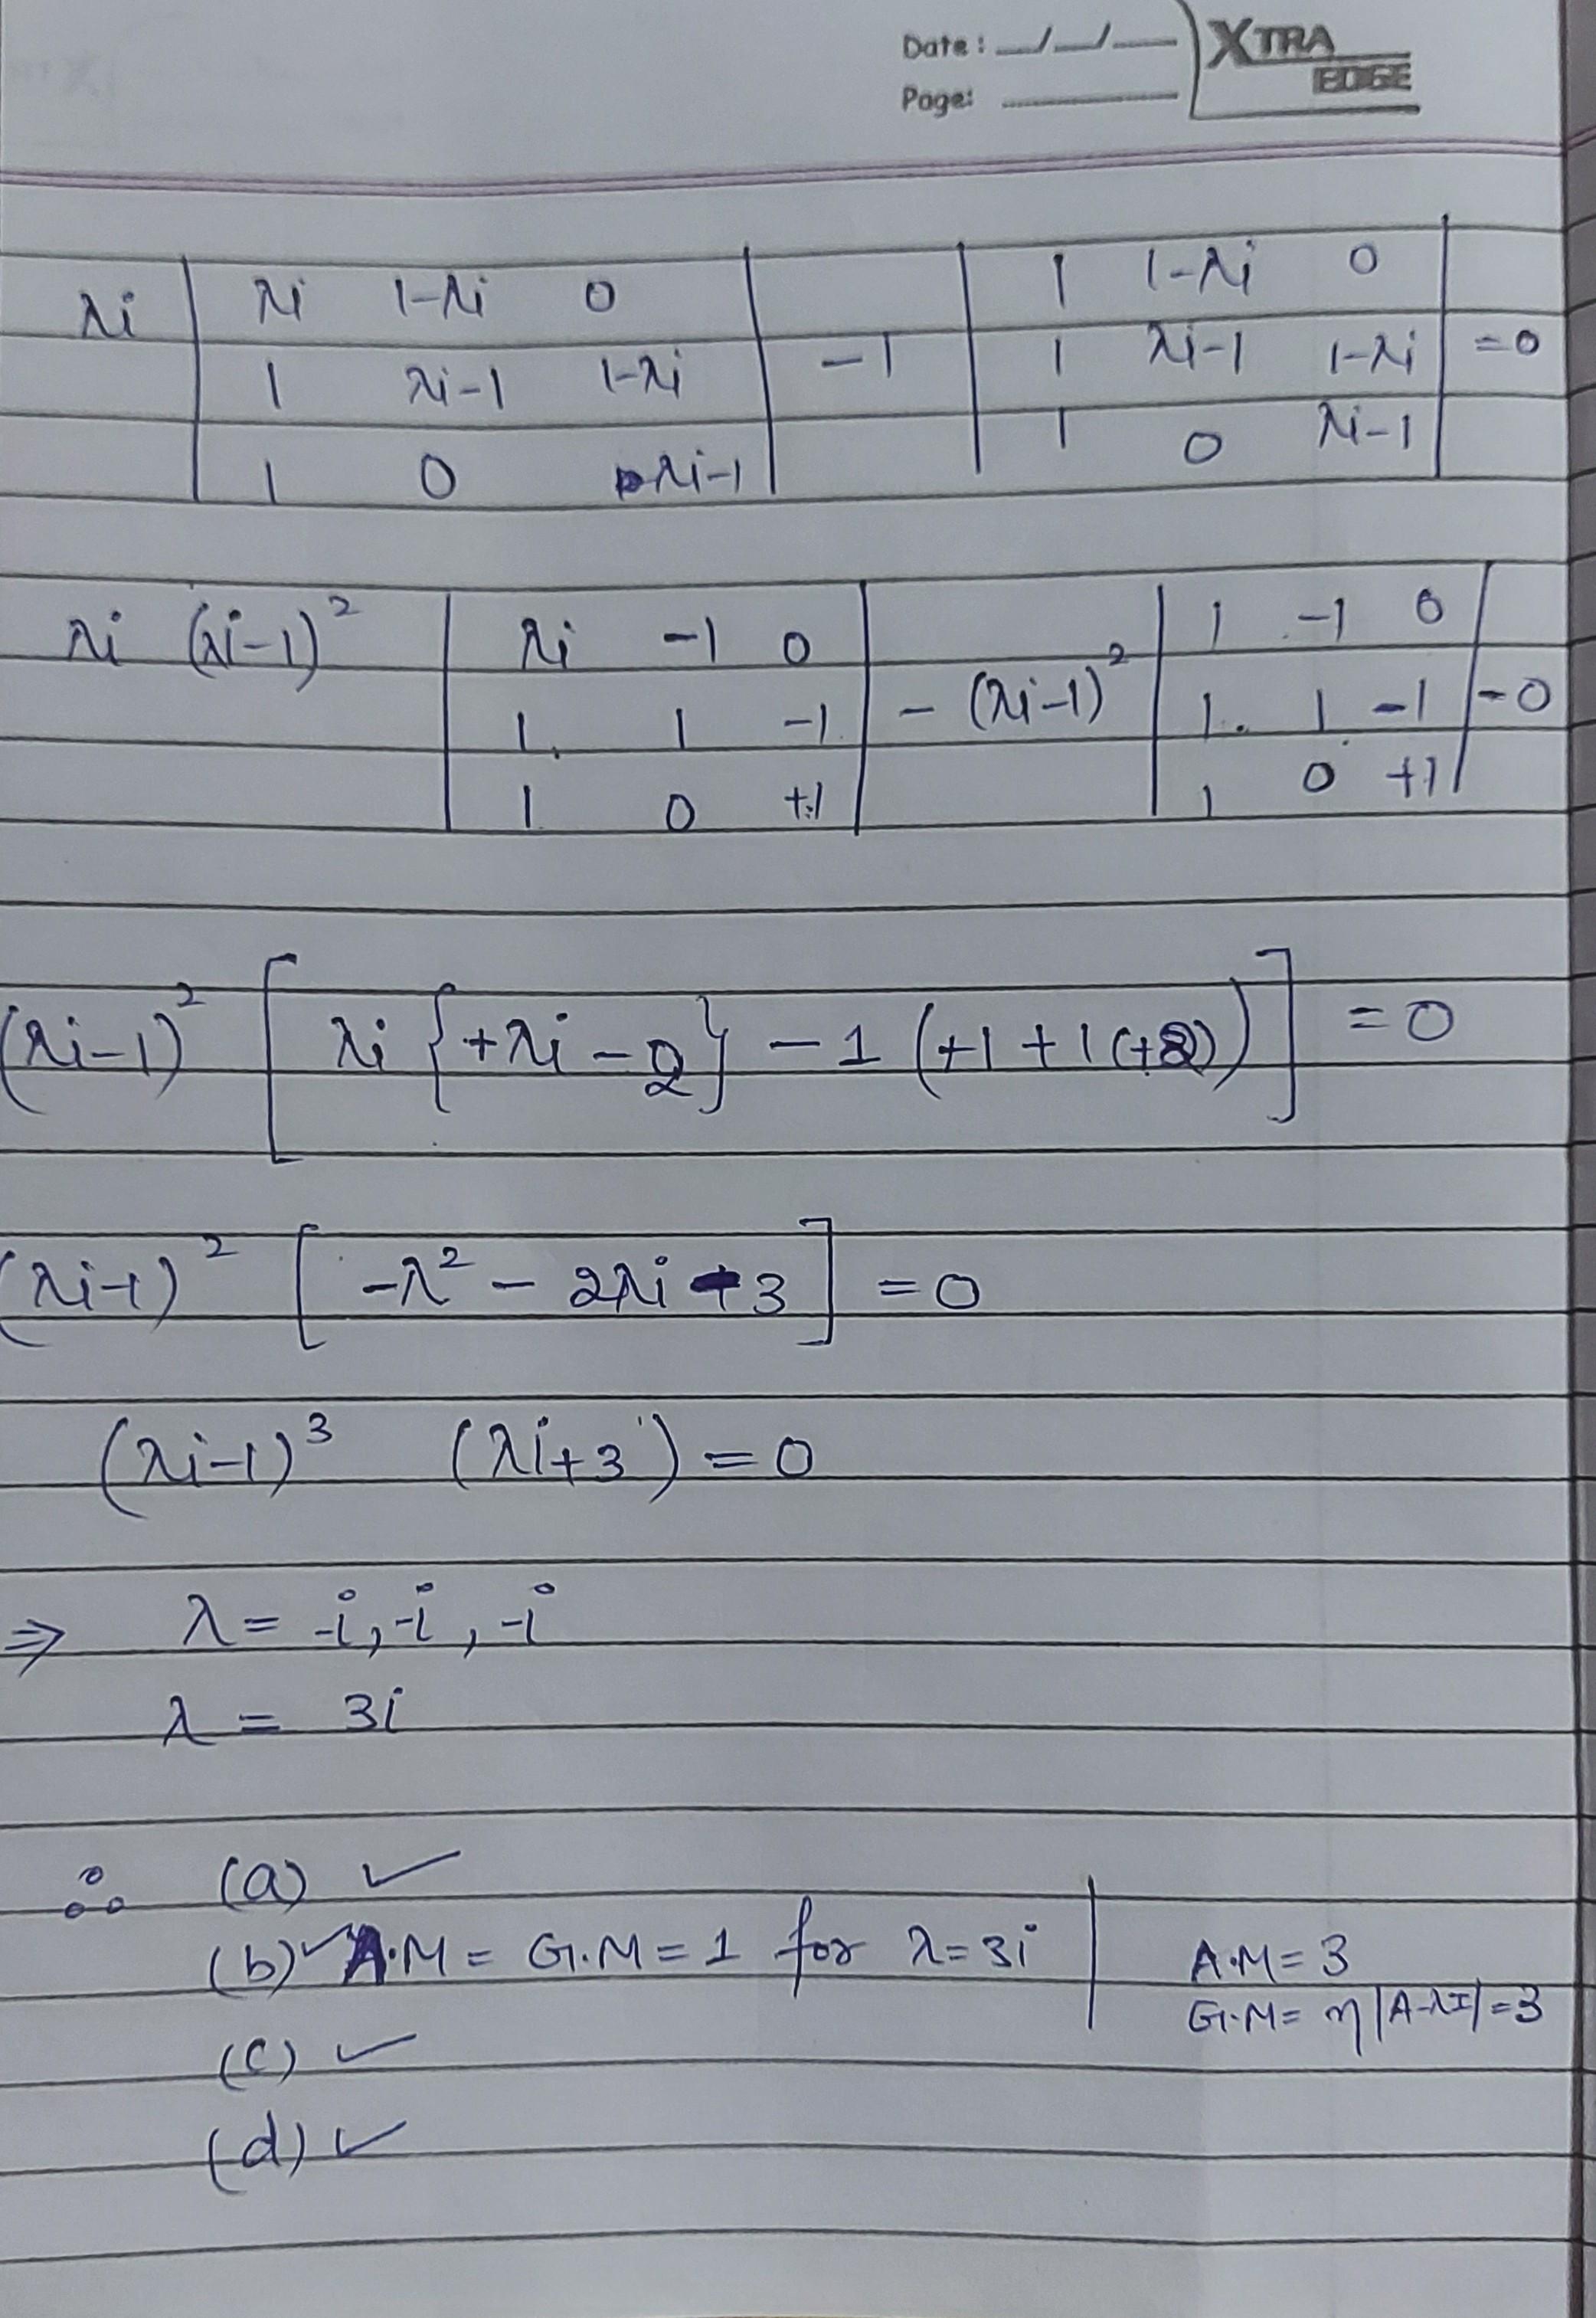 Date: __/__/__ XTRA
Page: ________ EDGE
λi | λi 1-λi 0 | | 1 1-λi 0 |
| 1 λi-1 1-λi | -1 | 1 λi-1 1-λi | =0
| 1 0 λi-1 | | 1 0 λi-1 |
λi (λi-1)² | λi -1 0 | | 1 -1 0 |
| 1 1 -1 | - (λi-1)² | 1 1 -1 | =0
| 1 0 +1 | | 1 0 +1 |
(λi-1)² [ λi {+λi - 2} - 1 (+1+1(+2)) ] = 0
(λi-1)² [ -λ² - 2λi + 3 ] = 0
(λi-1)³ (λi+3) = 0
⇒ λ = -i, -i, -i
λ = 3i
∴ (a) ✓
(b) ✓ A.M = G.M = 1 for λ = 3i | A.M = 3
G.M = η |A-λI| = 3
(c) ✓
(d) ✓